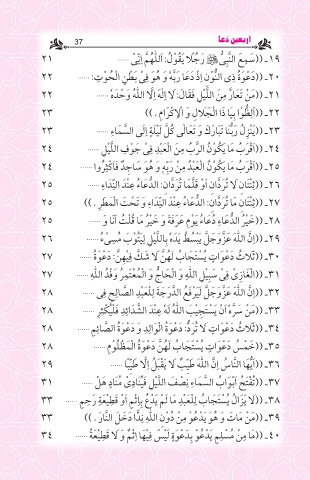 37
اربعین دعا
۱۹ـ ((سَمِعَ النَّبِيُّ ﷺ رَجُلًا يَقُوْلُ: اَللّٰهُمَّ اِنِّيْ ...... ۲۱
۲۰ـ ((دَعْوَةُ ذِي النُّوْنِ اِذْ دَعَا رَبَّهٗ وَ هُوَ فِيْ بَطْنِ الْحُوْتِ: ...... ۲۲
۲۱ـ ((مَنْ تَعَارَّ مِنَ اللَّيْلِ فَقَالَ: لَا اِلٰهَ اِلَّا اللّٰهُ وَحْدَهٗ ...... ۲۲
۲۲ـ ((اَلِظُّوْا بِيَا ذَا الْجَلَالِ وَ الْاِكْرَامِ. )) ...... ۲۳
۲۳ـ ((يَنْزِلُ رَبُّنَا تَبَارَكَ وَ تَعَالٰى كُلَّ لَيْلَةٍ اِلَى السَّمَاءِ ...... ۲۳
۲۴ـ ((اَقْرَبُ مَا يَكُوْنُ الرَّبُّ مِنَ الْعَبْدِ فِيْ جَوْفِ اللَّيْلِ ...... ۲۴
۲۵ـ ((اَقْرَبُ مَا يَكُوْنُ الْعَبْدُ مِنْ رَبِّهٖ وَ هُوَ سَاجِدٌ فَاَكْثِرُوا ...... ۲۴
۲۶ـ ((ثِنْتَانِ لَا تُرَدَّانِ اَوْ قَلَّمَا تُرَدَّانِ: الدُّعَاءُ عِنْدَ النِّدَاءِ ...... ۲۵
۲۷ـ ((ثِنْتَانِ مَا تُرَدَّانِ: الدُّعَاءُ عِنْدَ النِّدَاءِ وَ تَحْتَ الْمَطَرِ. )) ...... ۲۵
۲۸ـ ((خَيْرُ الدُّعَاءِ دُعَاءُ يَوْمِ عَرَفَةَ وَ خَيْرُ مَا قُلْتُ اَنَا وَ ...... ۲۵
۲۹ـ ((اِنَّ اللّٰهَ عَزَّوَجَلَّ يَبْسُطُ يَدَهٗ بِاللَّيْلِ لِيَتُوْبَ مُسِيْءُ ...... ۲۶
۳۰ـ ((ثَلَاثُ دَعَوَاتٍ يُسْتَجَابُ لَهُنَّ لَا شَكَّ فِيْهِنَّ: دَعْوَةُ ...... ۲۷
۳۱ـ ((الْغَازِيْ فِيْ سَبِيْلِ اللّٰهِ وَ الْحَاجُّ وَ الْمُعْتَمِرُ وَفْدُ اللّٰهِ ...... ۲۷
۳۲ـ ((اِنَّ اللّٰهَ عَزَّوَجَلَّ لَيَرْفَعُ الدَّرَجَةَ لِلْعَبْدِ الصَّالِحِ فِي ...... ۲۸
۳۳ـ ((مَنْ سَرَّهٗ اَنْ يَسْتَجِيْبَ اللّٰهُ لَهٗ عِنْدَ الشَّدَائِدِ فَلْيُكْثِرِ ...... ۲۸
۳۴ـ ((ثَلَاثُ دَعَوَاتٍ لَا تُرَدُّ: دَعْوَةُ الْوَالِدِ وَ دَعْوَةُ الصَّائِمِ ...... ۲۸
۳۵ـ ((خَمْسُ دَعَوَاتٍ يُسْتَجَابُ لَهُنَّ دَعْوَةُ الْمَظْلُوْمِ ...... ۲۸
۳۶ـ ((اَيُّهَا النَّاسُ اِنَّ اللّٰهَ طَيِّبٌ لَا يَقْبَلُ اِلَّا طَيِّبًا ...... ۲۹
۳۷ـ ((تُفْتَحُ اَبْوَابُ السَّمَاءِ نِصْفَ اللَّيْلِ فَيُنَادِيْ مُنَادٍ هَلْ ...... ۳۱
۳۸ـ ((لَا يَزَالُ يُسْتَجَابُ لِلْعَبْدِ مَا لَمْ يَدْعُ بِاِثْمٍ اَوْ قَطِيْعَةِ رَحِمٍ ...... ۳۳
۳۹ـ ((مَنْ مَاتَ وَ هُوَ يَدْعُوْ مِنْ دُوْنِ اللّٰهِ نِدًّا دَخَلَ النَّارَ. )) ...... ۳۳
۴۰ـ ((مَا مِنْ مُسْلِمٍ يَدْعُوْ بِدَعْوَةٍ لَيْسَ فِيْهَا اِثْمٌ وَ لَا قَطِيْعَةُ ...... ۳۴